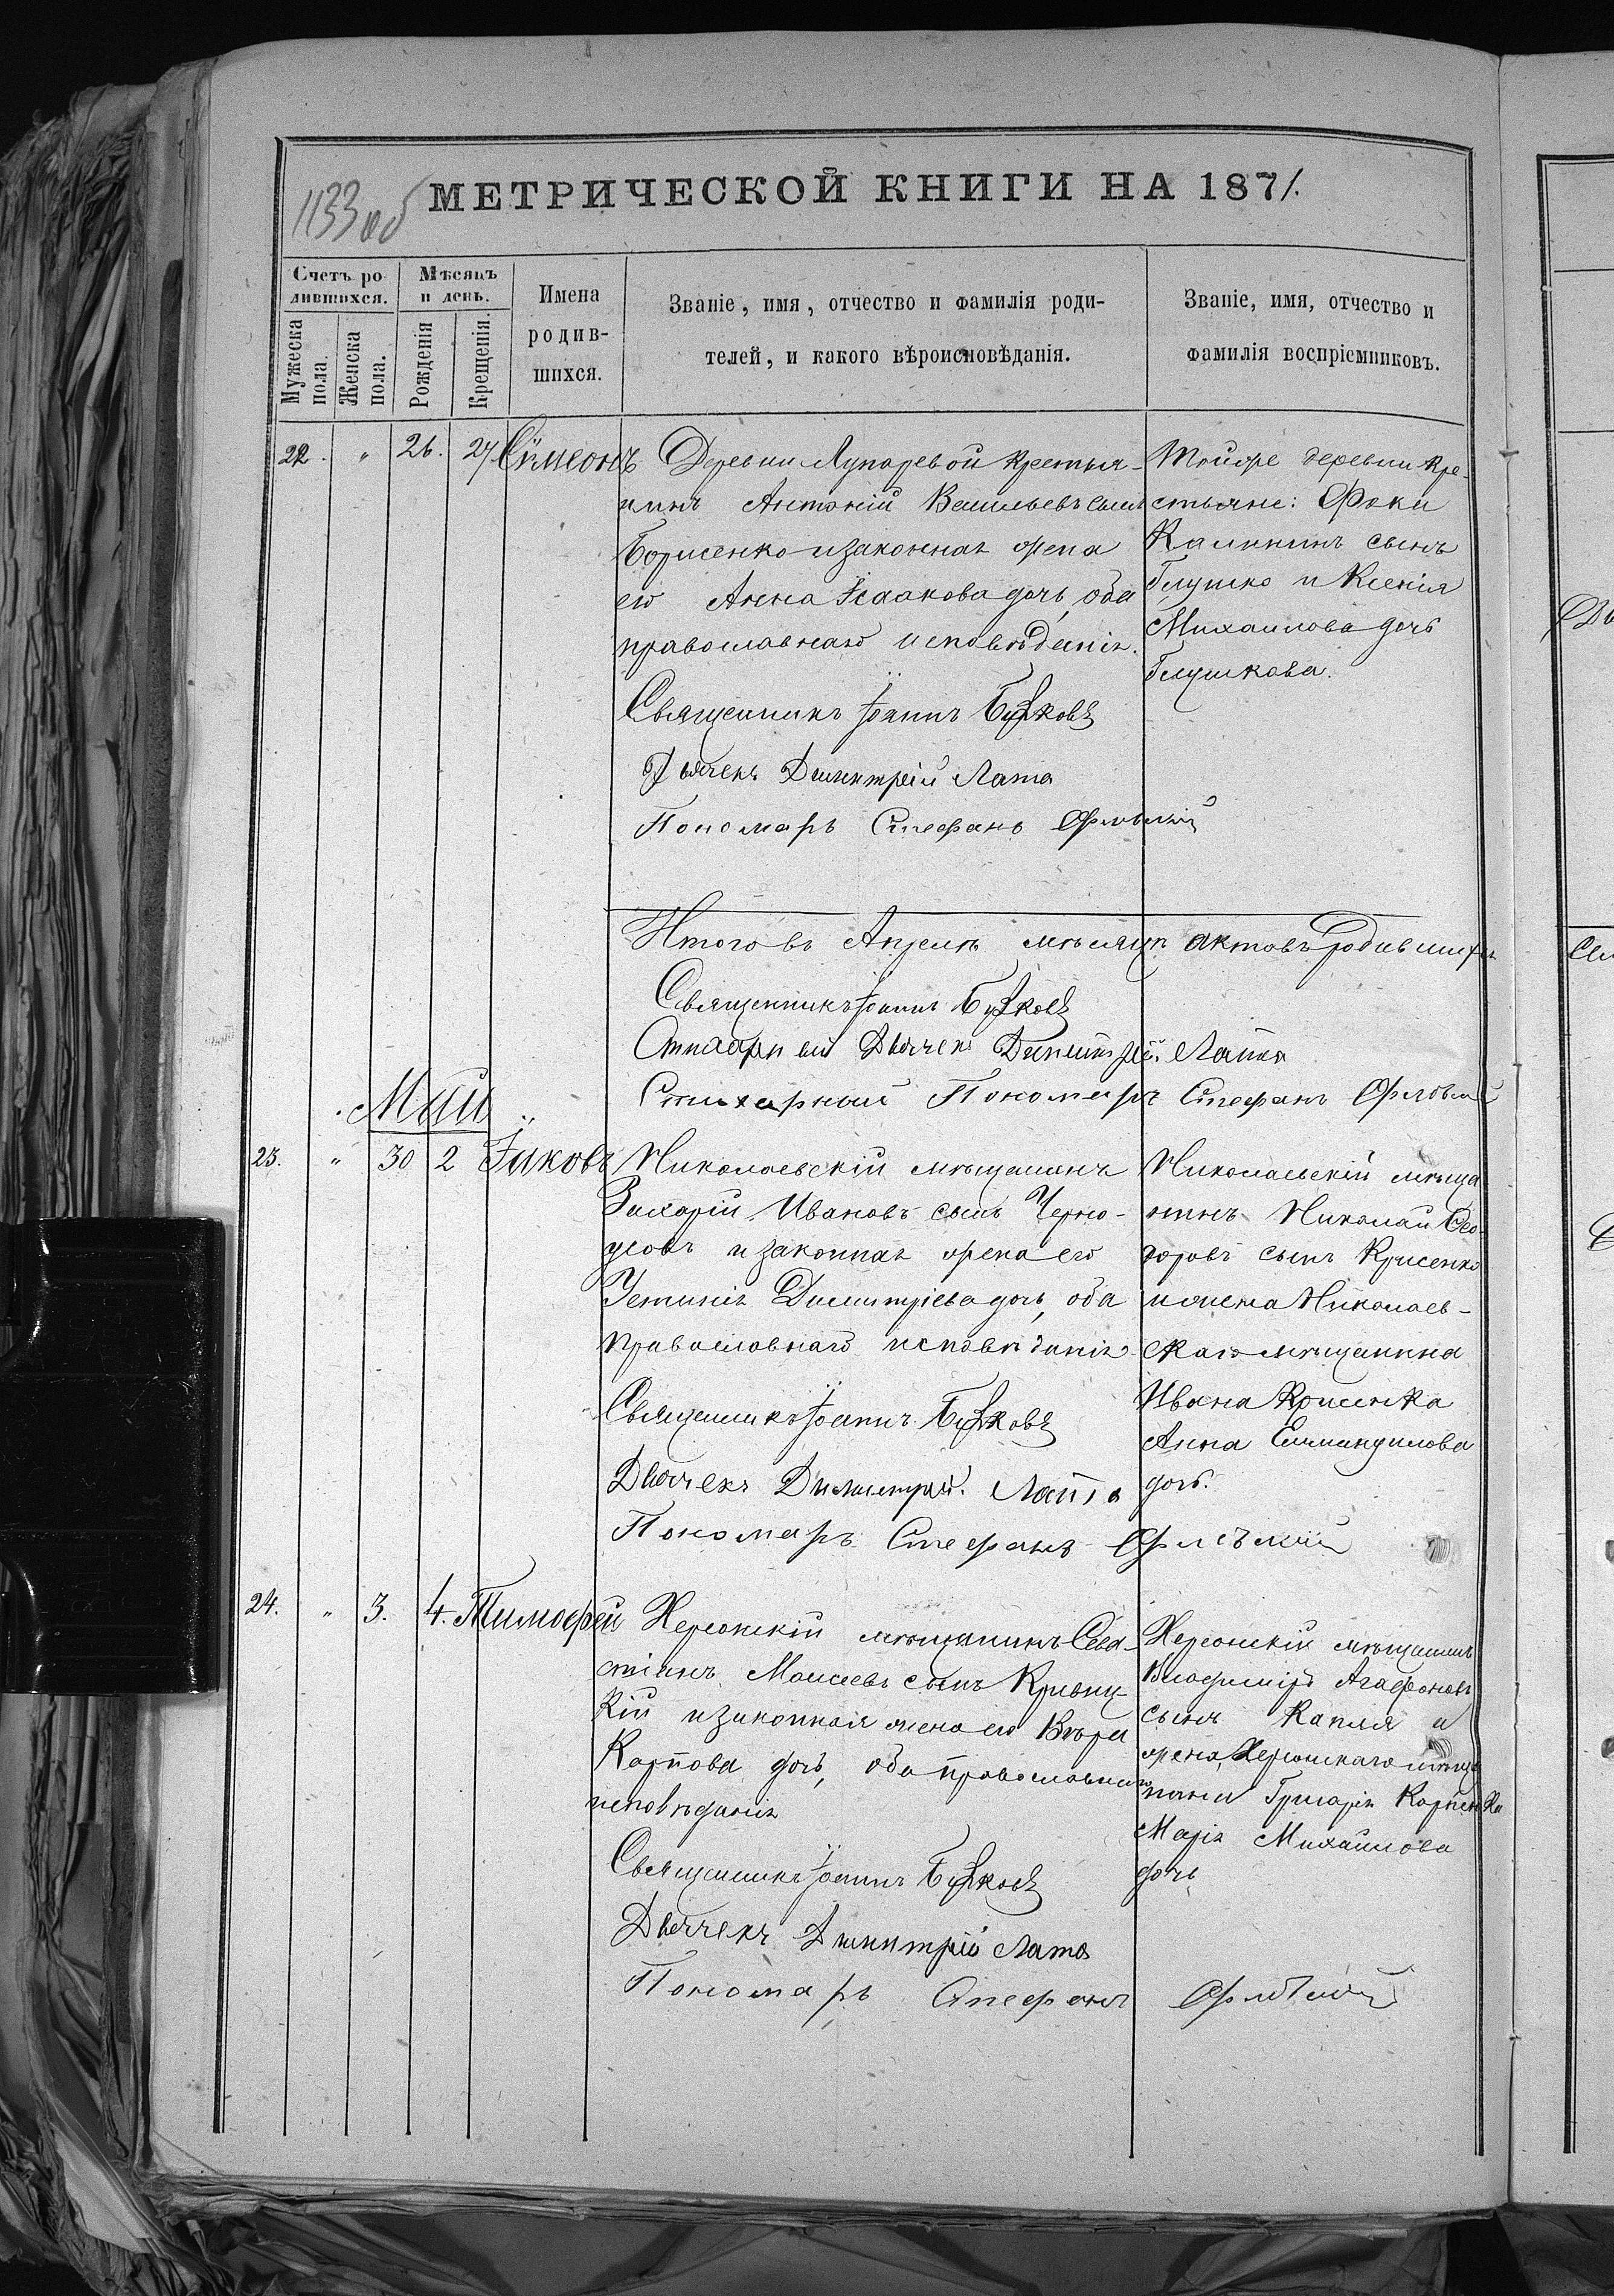 1133 об
МЕТРИЧЕСКОЙ КНИГИ НА 1871.
Счетъ ро
дившихся.
Мѣсяцъ
и день.
Мужеска
пола.
Женска
пола.
Рожденія
Крещенія.
Имена
родив-
шихся.
Званіе, имя, отчество и фамилія роди-
телей, и какого вѣроисповѣданія.
Званіе, имя, отчество и
фамилія воспріемниковъ.
22. " 26. 27 Сѵмеонъ
Деревни Лупаревой крестья-
нинъ Антоній Васильевъ сынъ
Борисенко и законная жена
его Анна Исаакова дочь, оба
православнаго исповѣданія.
Священникъ Іоаннъ
Дьячекъ Димитрій Лата
Пономарь Стефанъ
Тойже деревни кре-
стьяне: Фока
Калининъ сынъ
Глушко и Ксенія
Михаилова дочь
Глушкова.
Итого въ Апрелѣ мѣсяцѣ актовъ родившихъ
Священникъ Іоаннъ
Дьячекъ Димитрій Лата
Стихарный Пономарь Стефанъ
Май
23. " 30 2 Іаковъ
Николаевскій мѣщанинъ
Захарій Ивановъ сынъ Черно-
усовъ и законная жена его
Устинія Димитріева дочь, оба
православнаго исповѣданія
Священникъ Іоаннъ
Дьячекъ Димитрій Лата
Пономарь Стефанъ
Николаевскій мѣща
нинъ Николай Ѳео-
доровъ сынъ Крисенко
и жена Николаев-
скаго мѣщанина
Ивана Крисенка
Анна
дочь.
24. " 3. 4. Тимофей
Херсонскій мѣщанинъ Сева-
стіанъ Моисеевъ сынъ Кривиц-
кій и законная жена его Вѣра
Карпова дочь, оба православнаго
исповѣданія
Священникъ Іоаннъ
Дьячекъ Димитрій Лата
Пономарь Стефанъ
Херсонскій мѣщанинъ
Владиміръ Агафоновъ
сынъ Капля и
жена Херсонскаго мѣща
нина Григорія Карпенка
Марія Михаилова
дочь